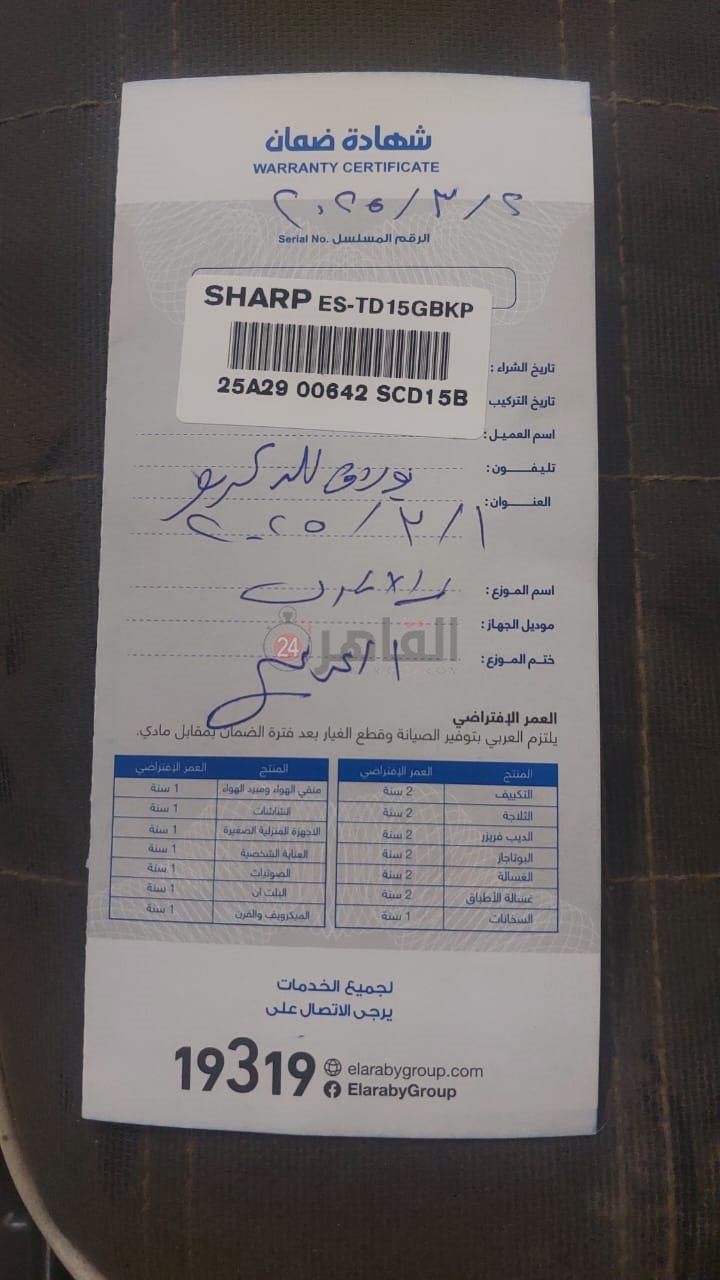 شهادة ضمان
WARRANTY CERTIFICATE
٢٠٢٥/٣/٢
الرقم المسلسل Serial No.
SHARP ES-TD15GBKP
25A29 00642 SCD15B
تاريخ الشراء :
تاريخ التركيب
اسم العميل :
تليفــــون :
العنـــــوان :
٢٠٢٥/٣/١
اسم المـوزع :
موديل الجهاز :
ختـم الموزع :
القاهرة 24
العمر الإفتراضي
يلتزم العربي بتوفير الصيانة وقطع الغيار بعد فترة الضمان بمقابل مادي.
المنتج العمر الإفتراضي المنتج العمر الإفتراضي
التكييف 2 سنة منقي الهواء ومبرد الهواء 1 سنة
الثلاجة 2 سنة الشاشات 1 سنة
الديب فريزر 2 سنة الأجهزة المنزلية الصغيرة 1 سنة
البوتاجاز 2 سنة العناية الشخصية 1 سنة
الغسالة 2 سنة الصوتيات 1 سنة
غسالة الأطباق 2 سنة البلت ان 1 سنة
السخانات 1 سنة الميكرويف والفرن 1 سنة
لجميع الخدمات
يرجى الاتصال على
19319 elarabygroup.com
ElarabyGroup